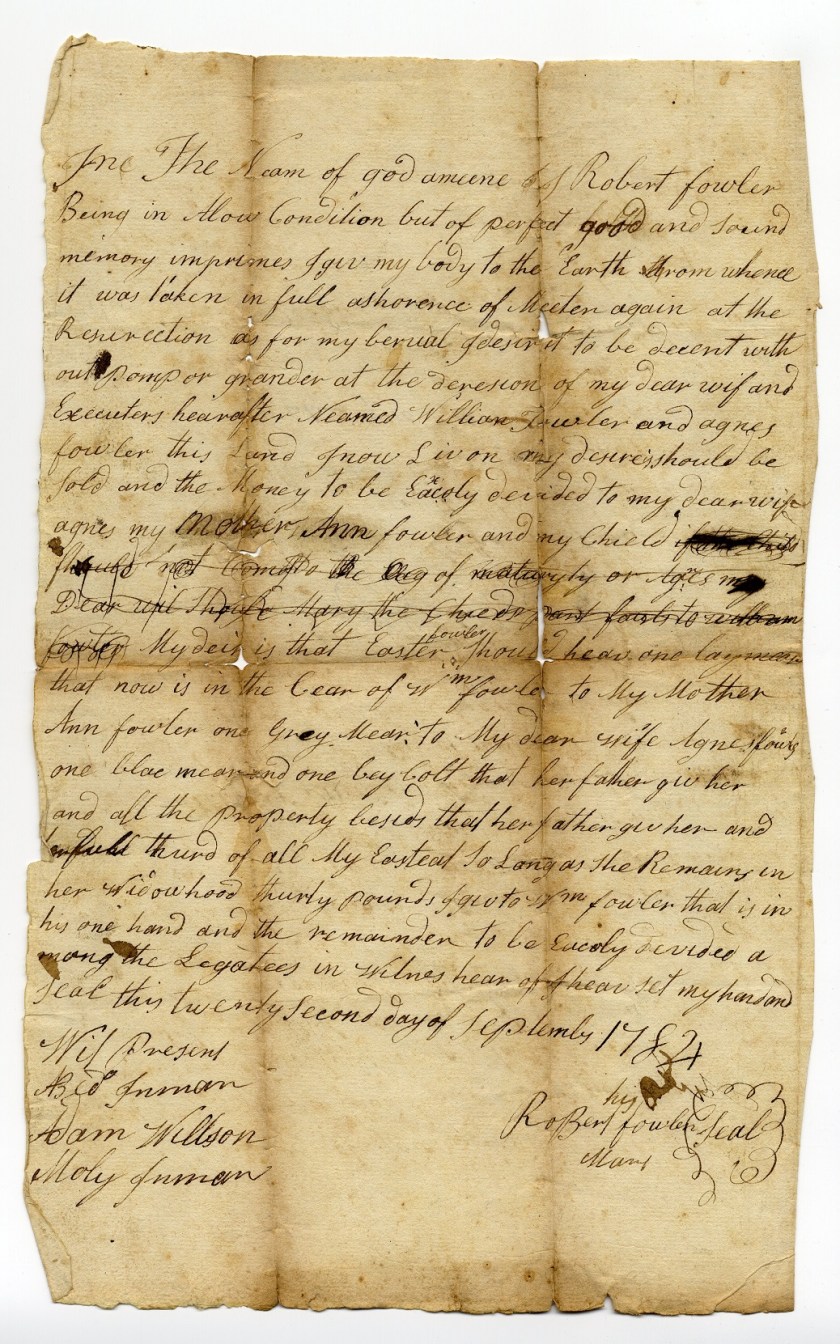 Ine The Neam of god ameene I Robert fowler
Being in Alow Condition but of perfect good and Sound
memory imprimes I giv my body to the Earth from whence
it was taken in full ashorence of Meeten again at the
Resurection as for my berual I desir it to be decent with
out pomp or grander at the deresion of my dear wif and
Executers hearafter Neamed William Fowler and agnes
fowler this Land I now Liv on my desire should be
Sold and the Money to be Eaxcly decided to my dear wife
agnes my Mother Ann fowler and my Chield if the Child
should not Come to the Aeg of maturyty or Ages my
Dear wif Should Mary the Chieds part fauls to william
fowler My deir is that Easter fowler Should heav one bay mear
that now is in the Cear of Wm fowler to My Mother
Ann fowler one Grey Mear to My dear wife Agnes fowler
one blac mear and one bey Colt that her father giv her
and all the property besids that her father giv her and
full thurd of all My Easteat So Lang as She Remains in
her Widowhood thurty pounds I giv to Wm fowler that is in
his one hand and the remainder to be Eacoly devided a
mong the Legatees in Witnes hear of I heav set my hand and
Seal this twenty Second day of Septembr 1784
Wit Present
Abed Inman
Adam Willson
Moly Inman
his
RoBert fowler Seal
Mark